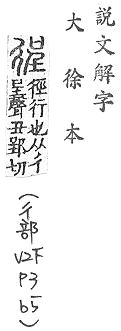 説文解字
大徐本
徎徑行也从彳
呈聲丑郢切
(彳部
V2下
P3
b5)